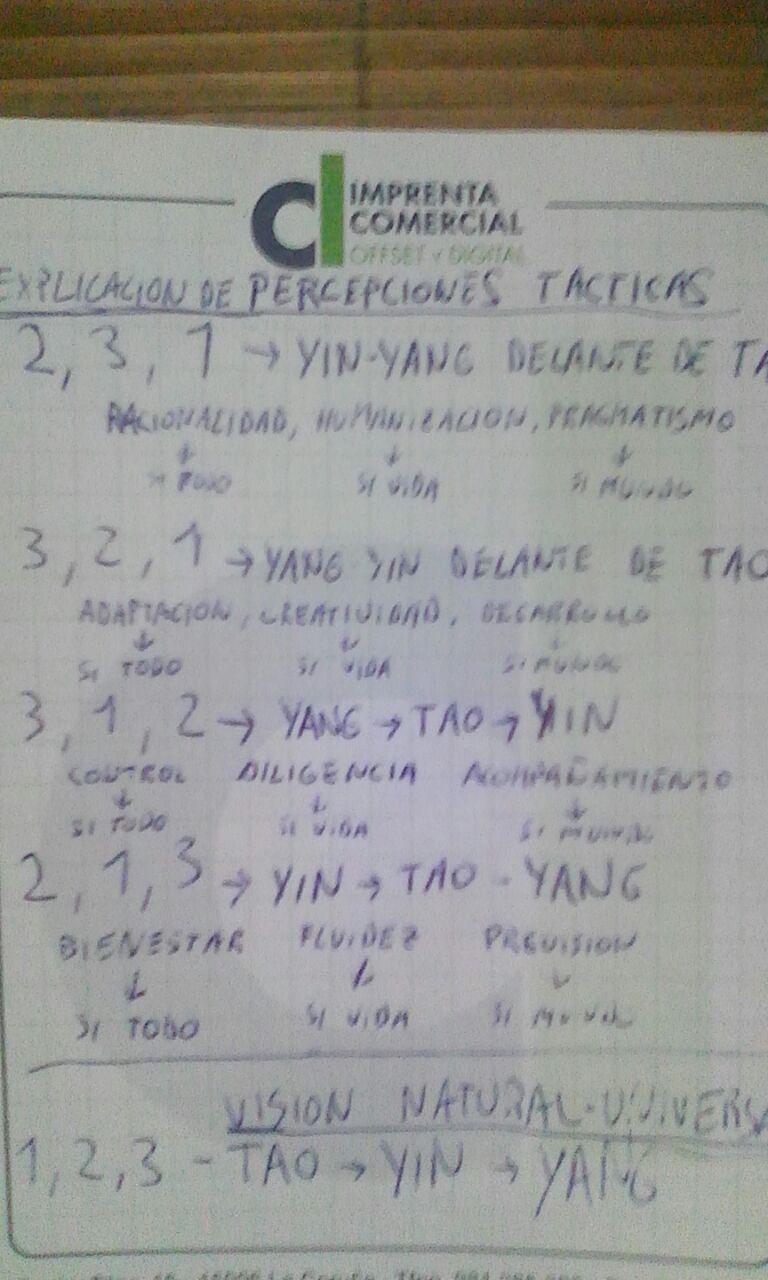 IMPRENTA
COMERCIAL
OFFSET Y DIGITAL
EXPLICACION DE PERCEPCIONES TACTICAS
2, 3, 1 → YIN-YANG DELANTE DE TA
RACIONALIDAD, HUMANIZACION, PRAGMATISMO
↓ ↓ ↓
SI TODO SI VIDA SI MUNDO
3, 2, 1 → YANG YIN DELANTE DE TAO
ADAPTACION, CREATIVIDAD, DESARROLLO
↓ ↓ ↓
SI TODO SI VIDA SI MUNDO
3, 1, 2 → YANG → TAO → YIN
CONTROL DILIGENCIA ACOMPAÑAMIENTO
↓ ↓ ↓
SI TODO SI VIDA SI MUNDO
2, 1, 3 → YIN → TAO - YANG
BIENESTAR FLUIDEZ PREVISION
↓ ↓ ↓
SI TODO SI VIDA SI MUNDO
VISION NATURAL-UNIVERS
1, 2, 3 - TAO → YIN → YANG